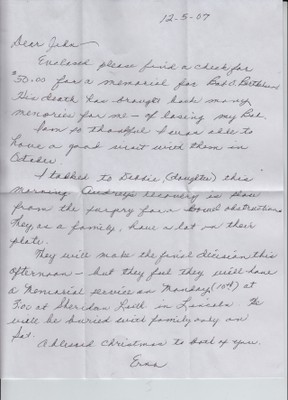 12-5-07
Dear John
Enclosed please find a check for
$50.00 for a memorial for Bob O.
His death has brought back many
memories for me - of losing my Bob.
I am so thankful I was able to
have a good visit with them in
October.
I talked to Debbie, (daughter) this
morning. Audrey's recovery is slow
from the surgery for a bowel obstruction
They, as a family, have a lot on their
plate.
They will make the final decision this
afternoon - but they feel they will have
a Memorial service on Monday (10th) at
3:00 at Sheridan Luth in Lincoln. He
will be buried with family only on
Sat.
A blessed Christmas to both of you.